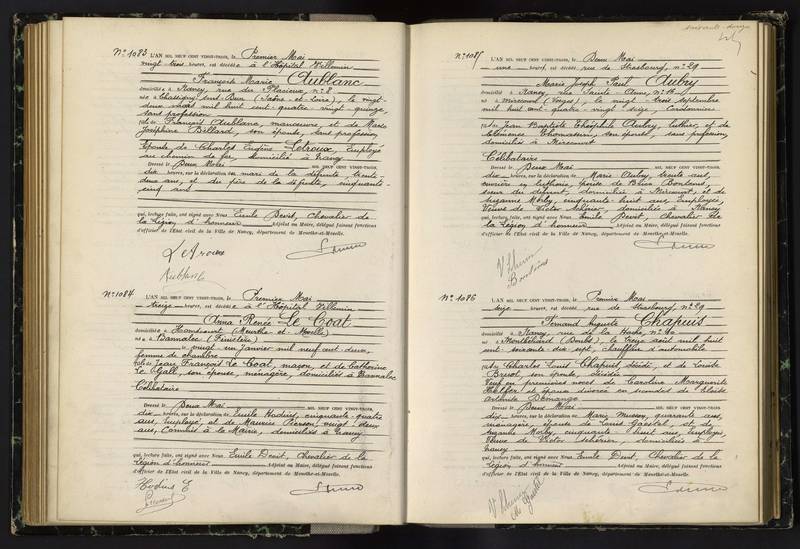 N° 1083 L'AN MIL NEUF CENT VINGT-TROIS, le Premier Mai
vingt trois heures, est décédée à l'Hôpital Villemin
Françoise Marie Aublanc
domiciliée à Nancy, rue du Placieux, n° 8
née à Chassigny sous Dun (Saône et Loire), le vingt
deux mars mil huit cent quatre vingt quinze,
sans profession
fille de François Aublanc, manœuvre et de Marie
Joséphine Billard, son épouse, sans profession
Épouse de Charles Eugène Letroux, Employé
au chemin de fer, domicilié à Nancy
Dressé le Deux Mai MIL NEUF CENT VINGT-TROIS,
dix heures, sur la déclaration du mari de la défunte, trente
deux ans, et du père de la défunte, cinquante
cinq ans
qui, lecture faite, ont signé avec Nous Emile Devit, Chevalier de
la Légion d'honneur Adjoint au Maire, délégué faisant fonctions
d'officier de l'État civil de la Ville de Nancy, département de Meurthe-et-Moselle.
Aublanc
N° 1084 L'AN MIL NEUF CENT VINGT-TROIS, le Premier Mai
treize heures, est décédée à l'Hôpital Villemin
Anna Renée Le Coat
domiciliée à (Meurthe et Moselle)
née à Bannalec (Finistère)
le vingt un Janvier mil neuf cent deux,
femme de chambre
fille de Jean François Le Coat, maçon, et de Catherine
Le Gall, son épouse, ménagère, domiciliés à Bannalec
Célibataire
Dressé le Deux Mai MIL NEUF CENT VINGT-TROIS,
dix heures, sur la déclaration de Emile Hodin, cinquante quatre
ans, Employé et de Maurice Pierson, vingt deux
ans, Commis à la Mairie, domiciliés à Nancy
qui, lecture faite, ont signé avec Nous Emile Devit, Chevalier de la
Légion d'honneur Adjoint au Maire, délégué faisant fonctions
d'officier de l'État civil de la Ville de Nancy, département de Meurthe-et-Moselle.
N° 1085 L'AN MIL NEUF CENT VINGT-TROIS, le Deux Mai
une heure, est décédé rue de Strasbourg, n° 29
Marie Joseph Paul Aubry
domicilié à Nancy, rue Sainte Anne, n°
né à Mirecourt (Vosges), le vingt trois septembre
mil huit cent quatre vingt seize, Cordonnier
fils de Jean Baptiste Théophile Aubry, luthier, et de
Clémence Thomassin, son épouse, sans profession
domiciliés à Mirecourt
Célibataire
Dressé le Deux Mai MIL NEUF CENT VINGT-TROIS,
dix heures, sur la déclaration de Marie Aubry, trente ans,
ouvrière en lutherie,
sœur du défunt, domiciliée à Mirecourt, et de
Suzanne Morly, cinquante huit ans, employée,
Veuve de Victor domiciliée à Nancy
qui, lecture faite, ont signé avec Nous Emile Devit, Chevalier de
la Légion d'honneur Adjoint au Maire, délégué faisant fonctions
d'officier de l'État civil de la Ville de Nancy, département de Meurthe-et-Moselle.
N° 1086 L'AN MIL NEUF CENT VINGT-TROIS, le Premier Mai
seize heures, est décédé rue de Strasbourg, n° 29
Fernand Auguste Chapuis
domicilié à Nancy, rue de la Hache, n°
né à Montbéliard (Doubs), le treize août mil huit
cent soixante dix sept, Chauffeur d'automobile
fils de Charles Louis Chapuis, décédé, et de Louise
son épouse, décédée
Veuf en premières noces de Caroline Marguerite
et époux divorcé en secondes de Eloïse
Demange
Dressé le Deux Mai MIL NEUF CENT VINGT-TROIS,
dix heures, sur la déclaration de Marie quarante ans,
ménagère, épouse de Louis et de
Suzanne Morly, cinquante huit ans, employée,
Veuve de Victor domiciliées à
Nancy
qui, lecture faite, ont signé avec Nous Emile Devit, Chevalier de la
Légion d'honneur Adjoint au Maire, délégué faisant fonctions
d'officier de l'État civil de la Ville de Nancy, département de Meurthe-et-Moselle.